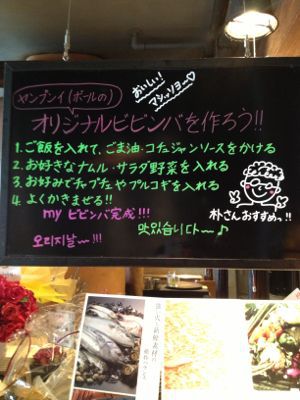 おいしい!
マシッソヨー♡
ヤンプンイ(ボールの)
オリジナルビビンバを作ろう!!
1. ご飯を入れて、ごま油・コチュジャンソースをかける
2. お好きなナムル・サラダ野菜を入れる
3. お好みでチャプチェやプルコギを入れる
4. よくかきまぜる!!
my ビビンバ完成!!!
오리지날~!!!
맛있습니다~♪
朴さんおすすめっ!!